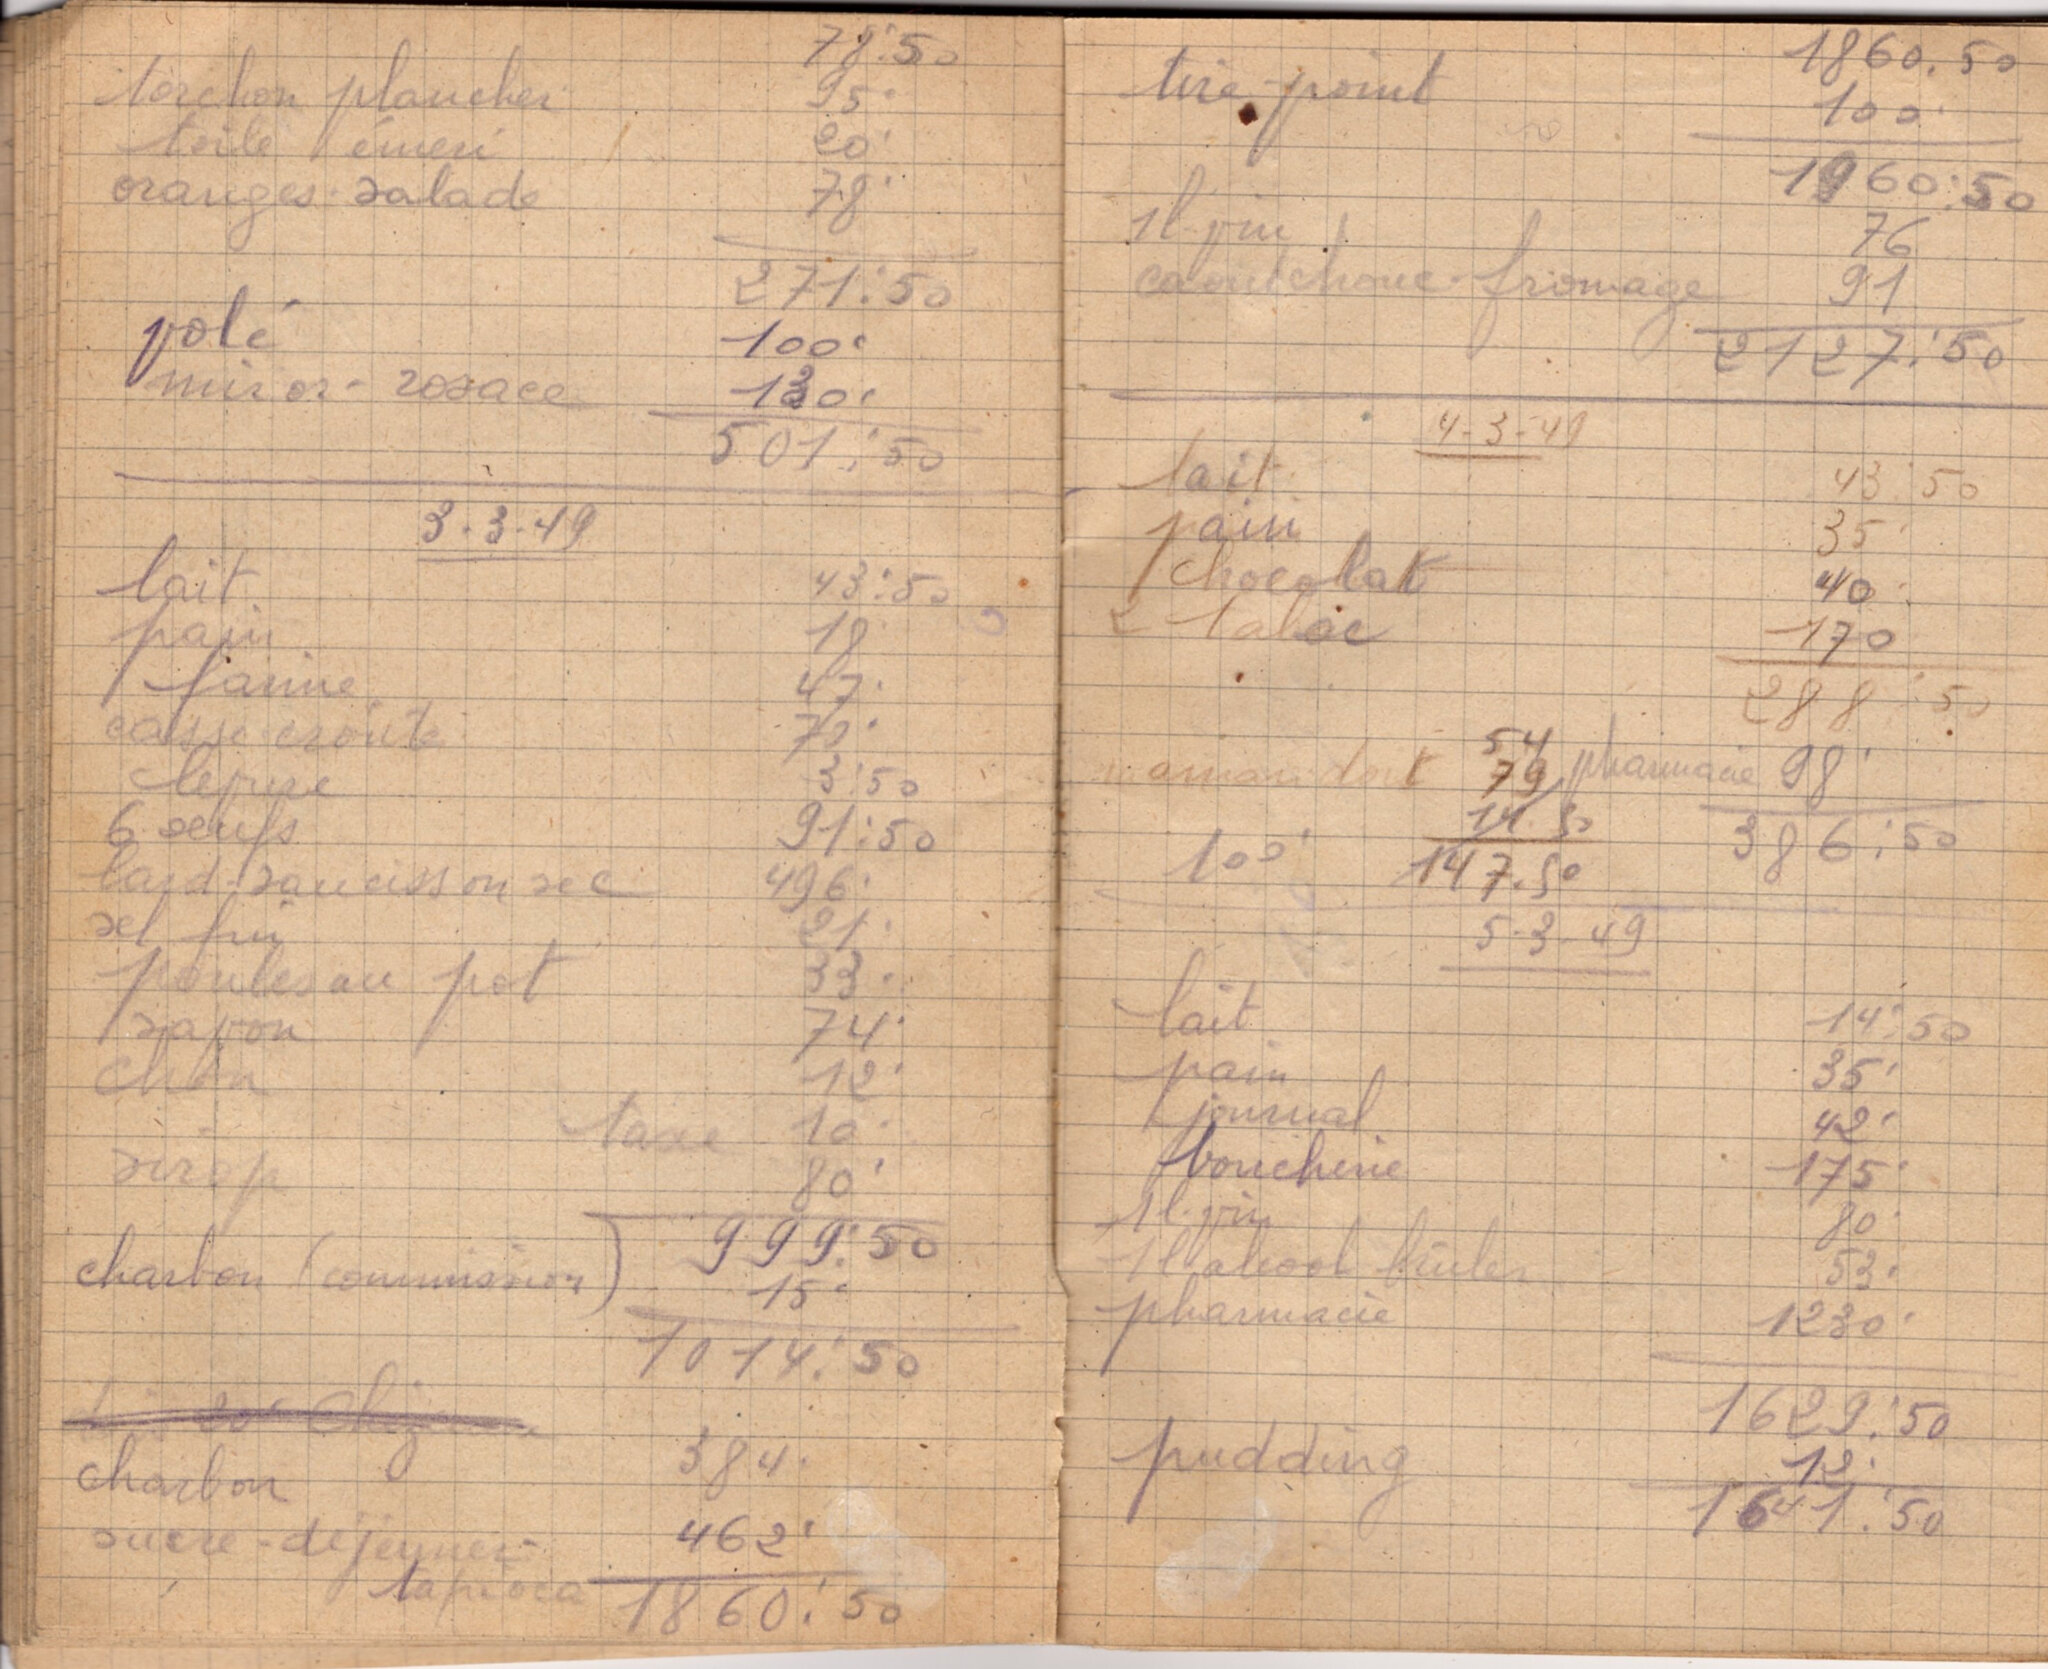 78:50
torchon plancher 95.
toile émeri 20.
oranges-salade 78.
271:50
volé 100.
miror-rosace 130.
501:50
3.3.49
lait 43:50
pain 18
farine 47.
casse-croûte 70.
levure 3:50
6 oeufs 91:50
lard-saucisson sec 496.
sel fin 21.
poules au pot 33.
savon 74.
chou 12.
taxe 10.
sirop 80.
999:50
charbon (commission) 15.
1014:50
charbon 384.
sucre-déjeuner 462.
tapioca
1860:50
1860.50
tire-point 100.
1960:50
1l.vin 76
caoutchouc-fromage 91
2127:50
4-3-49
lait 43:50
pain 35.
chocolat 40.
2 tabac 170
288:50
maman doit 54 pharmacie 98.
79
14.50 386:50
100. 147.50
5.3.49
lait 14:50
pain 35.
journal 42.
boucherie 175.
1l.vin 80.
1l alcool brûler 53.
pharmacie 1230.
1629:50
pudding 12.
1641:50